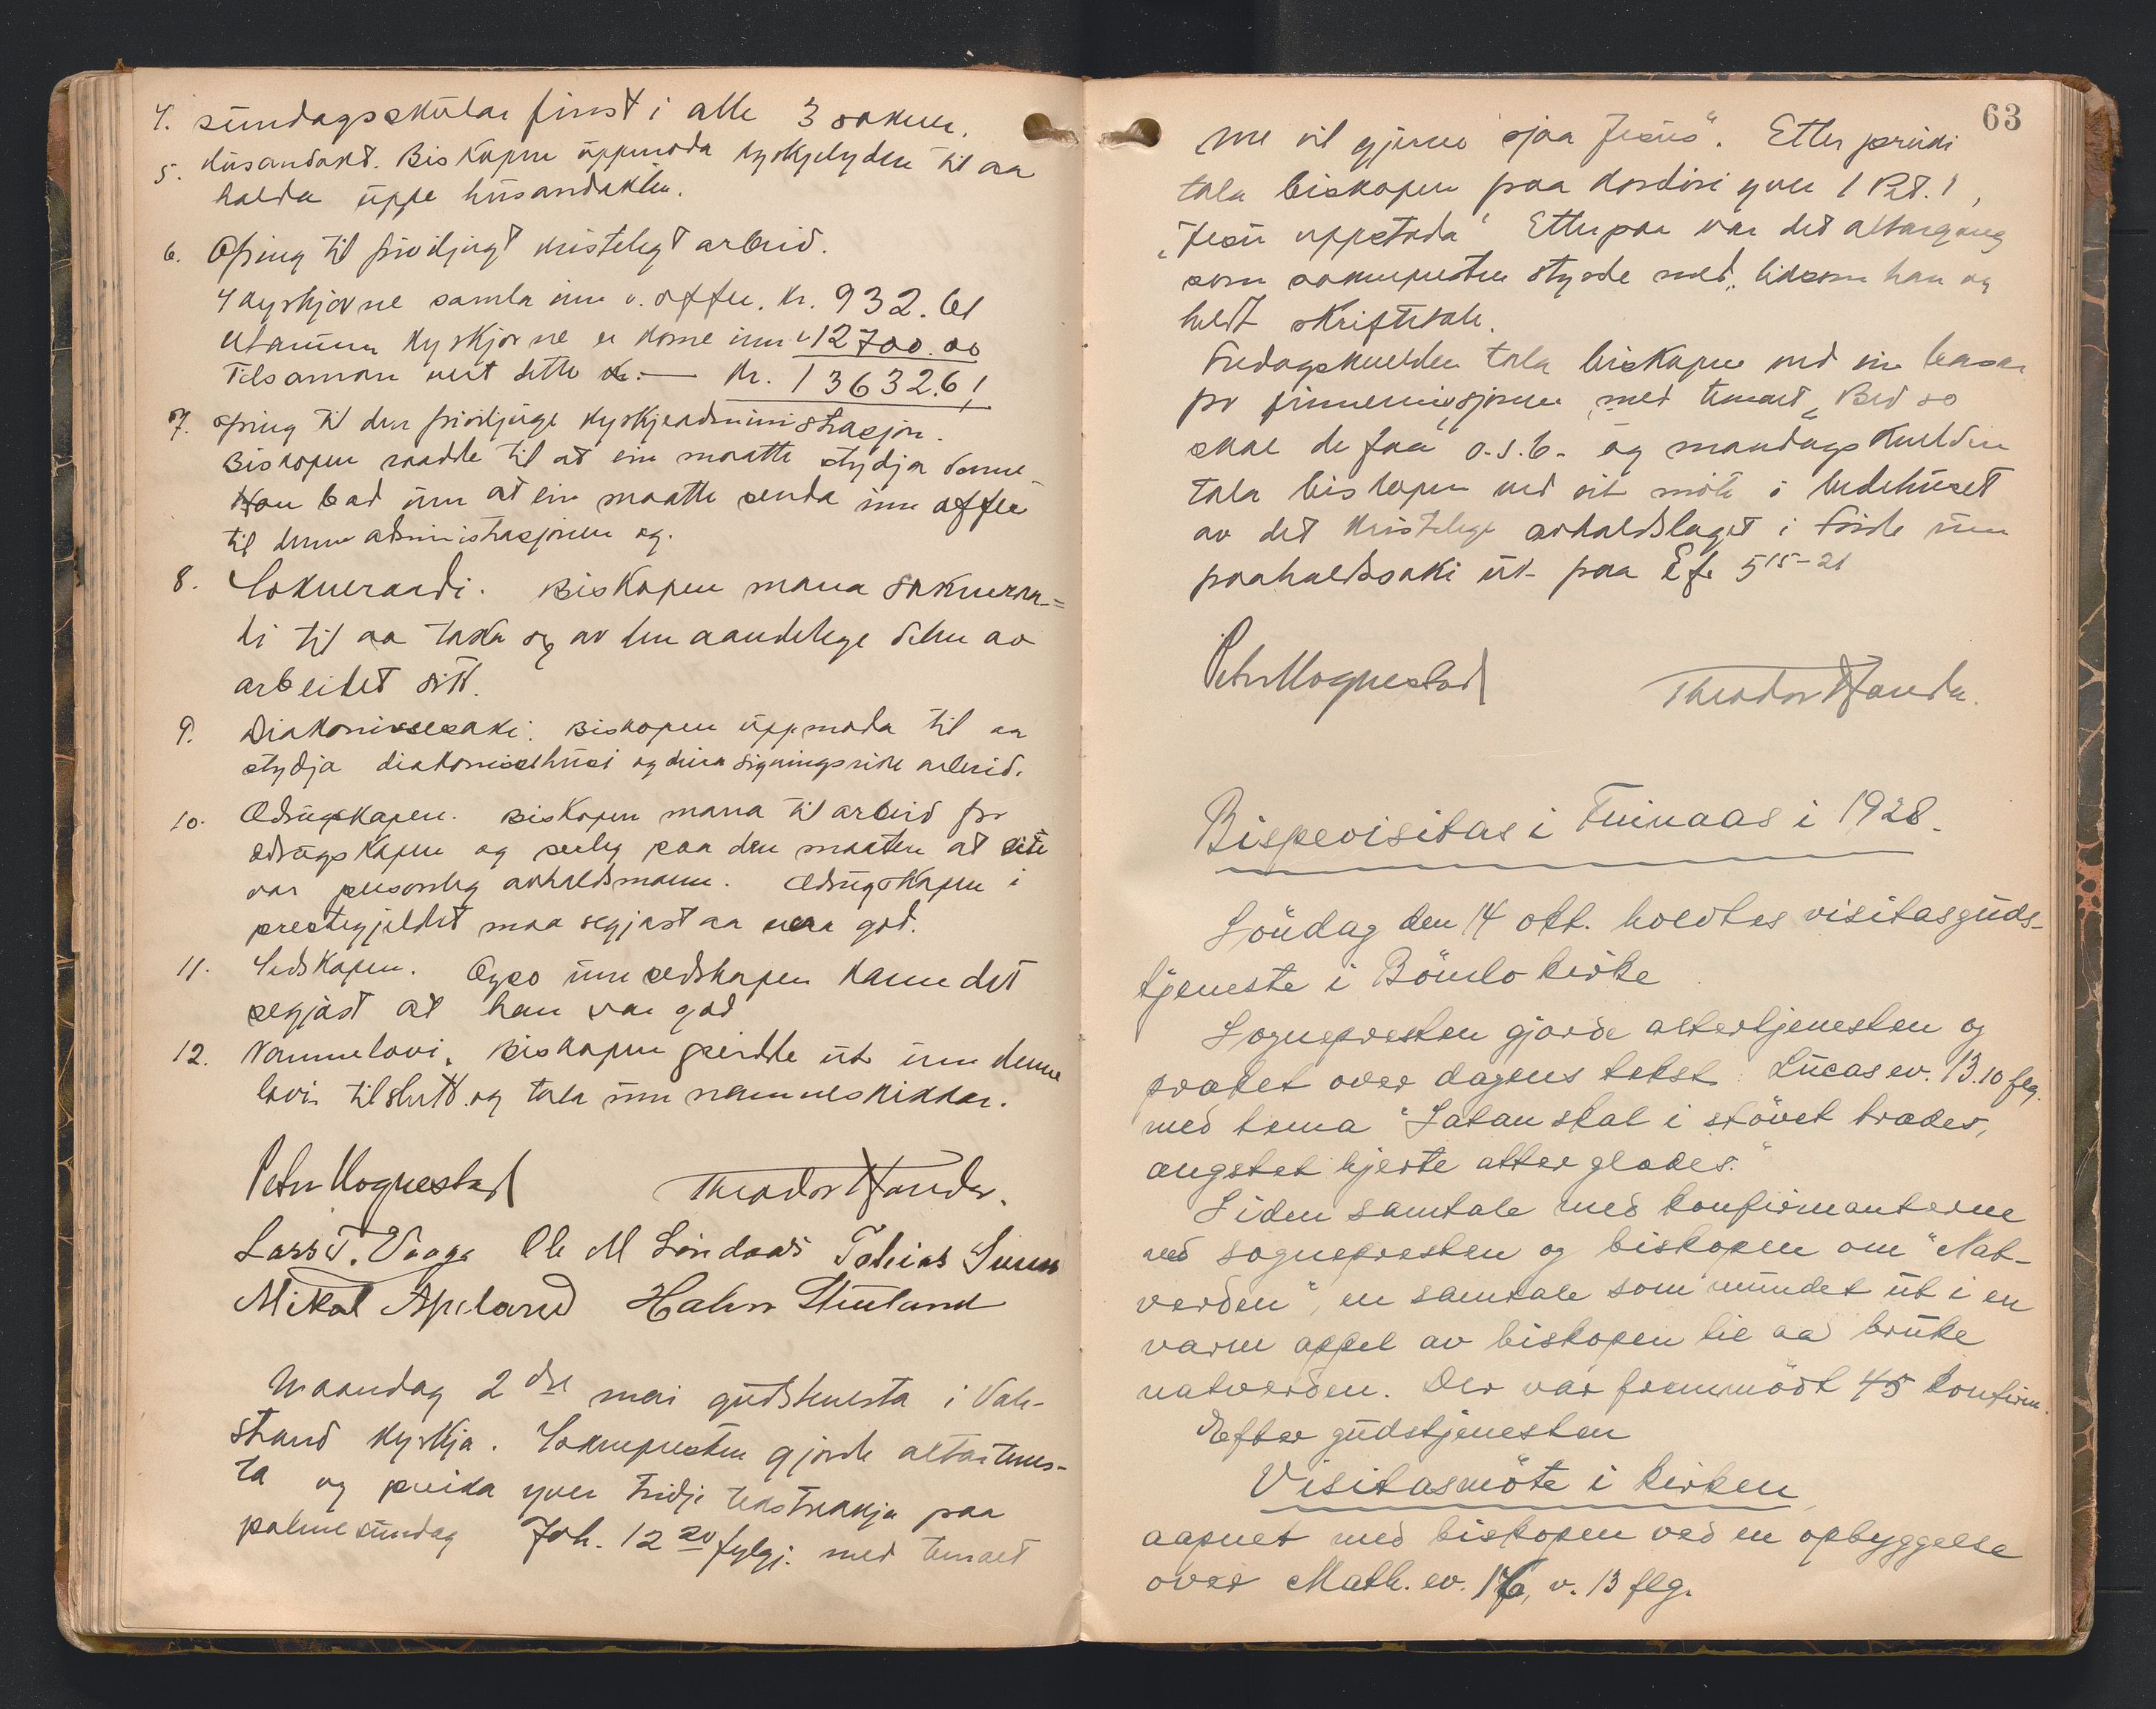 4. sundagsskular finst i alle 3 sokner.
5. Husandakt. Biskopen uppmoda kyrkjelyden til aa
halda uppe husandakten.
6. Ofring til friviljugt kristelegt arbeid.
I kyrkjorne samla inn v. offer. kr. 932.61
utanum kyrkjorne er kome inn " 12700.00
Tilsaman vert dette kr. — Kr. 13632.61
7. Ofring til den friviljuge kyrkjeadministrasjon.
Biskopen raadde til at ein maatte stydja denne.
Han bad um at ein maatte senda inn offer
til denne administrasjonen og.
8. Sokneraadi. Biskopen mana soknera=
di til aa taka seg av den aandelege delen av
arbeidet sitt.
9. Diakonissesaki. Biskopen uppmoda til aa
stydja diakonissehusi og deira signingsrike arbeid.
10. Ædrugskapen. Biskopen mana til arbeid for
ædrugskapen og serleg paa den maaten at
var personleg avhaldsmann. Ædrugskapen i
prestegjeldet maa segjast aa vera god.
11. Sedskapen. Ogso um sedskapen kann det
segjast at han var god
12. Namnelovi. Biskopen greidde ut um denne
lovi til slutt og tala um namneskikkar.
Peter Hognestad Theodor Handa.
Lars T. Vaage Ole M Lindaas Tobias
Mikal Apeland Hakon Stuland
Maandag 2dre mai gudstenesta i Vale-
strand kyrkja. Soknepresten gjorde altartenes-
ta og preika yver tridje tekstrekkja paa
palmesundag Joh. 12 20 fylgj. med temaet
63
me vil gjerne sjaa Jesus". Etter preiki
tala biskopen paa kordøri yver 1 Pet. 1,
"Jesu uppstoda" Etterpaa var det altargang
som soknepresten styrde med, likesom han og
heldt skriftetale.
Fredagskvelden tala biskopen ved ein basar
for finnemisjonen med temaet "Bed so
skal de faa" o.s.b. og mandagskvelden
tala biskopen ved eit møte i bedehuset
av det kristelege avhaldslaget i Førde um
paahaldssaki ut paa Ef. 5 15-21
Peter Hognestad Theodor Handa.
Bispevisitas i Finnaas i 1928.
Söndag den 14 okt. holdtes visitasguds-
tjeneste i Bömlo kirke
Sognepresten gjorde altertjenesten og
præket over dagens tekst: Lucas ev. 13.10 flg.
med tema "Satan skal i stövet trædes,
ængstet hjerte atter glædes."
Siden samtale med konfirmanterne
ved sognepresten og biskopen om "Nat-
verden", en samtale som mundet ut i en
varm appel av biskopen til aa bruke
natverden. Der var fremmödt 45 konfirm.
Efter gudstjenesten
Visitasmöte i kirken,
aapnet med biskopen ved en opbyggelse
over Math. ev. 16, v. 13 flg.